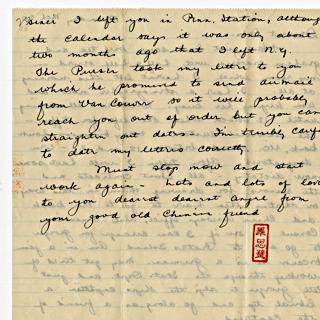 since I left you in Penn. Station, althoug
the calendar says it was only about
two months ago that I left N.Y.
The Purser took my letter to you
which he promised to send airmail
from Vancouver so it will probably
reach you out of order but you can
straighten out dates - I'm terribly caref
to date my letters correctly.
Must stop now and start
work again - Lots and lots of lov
to you dearest dearest Angie from
your good old Chinese friend
羅思慧